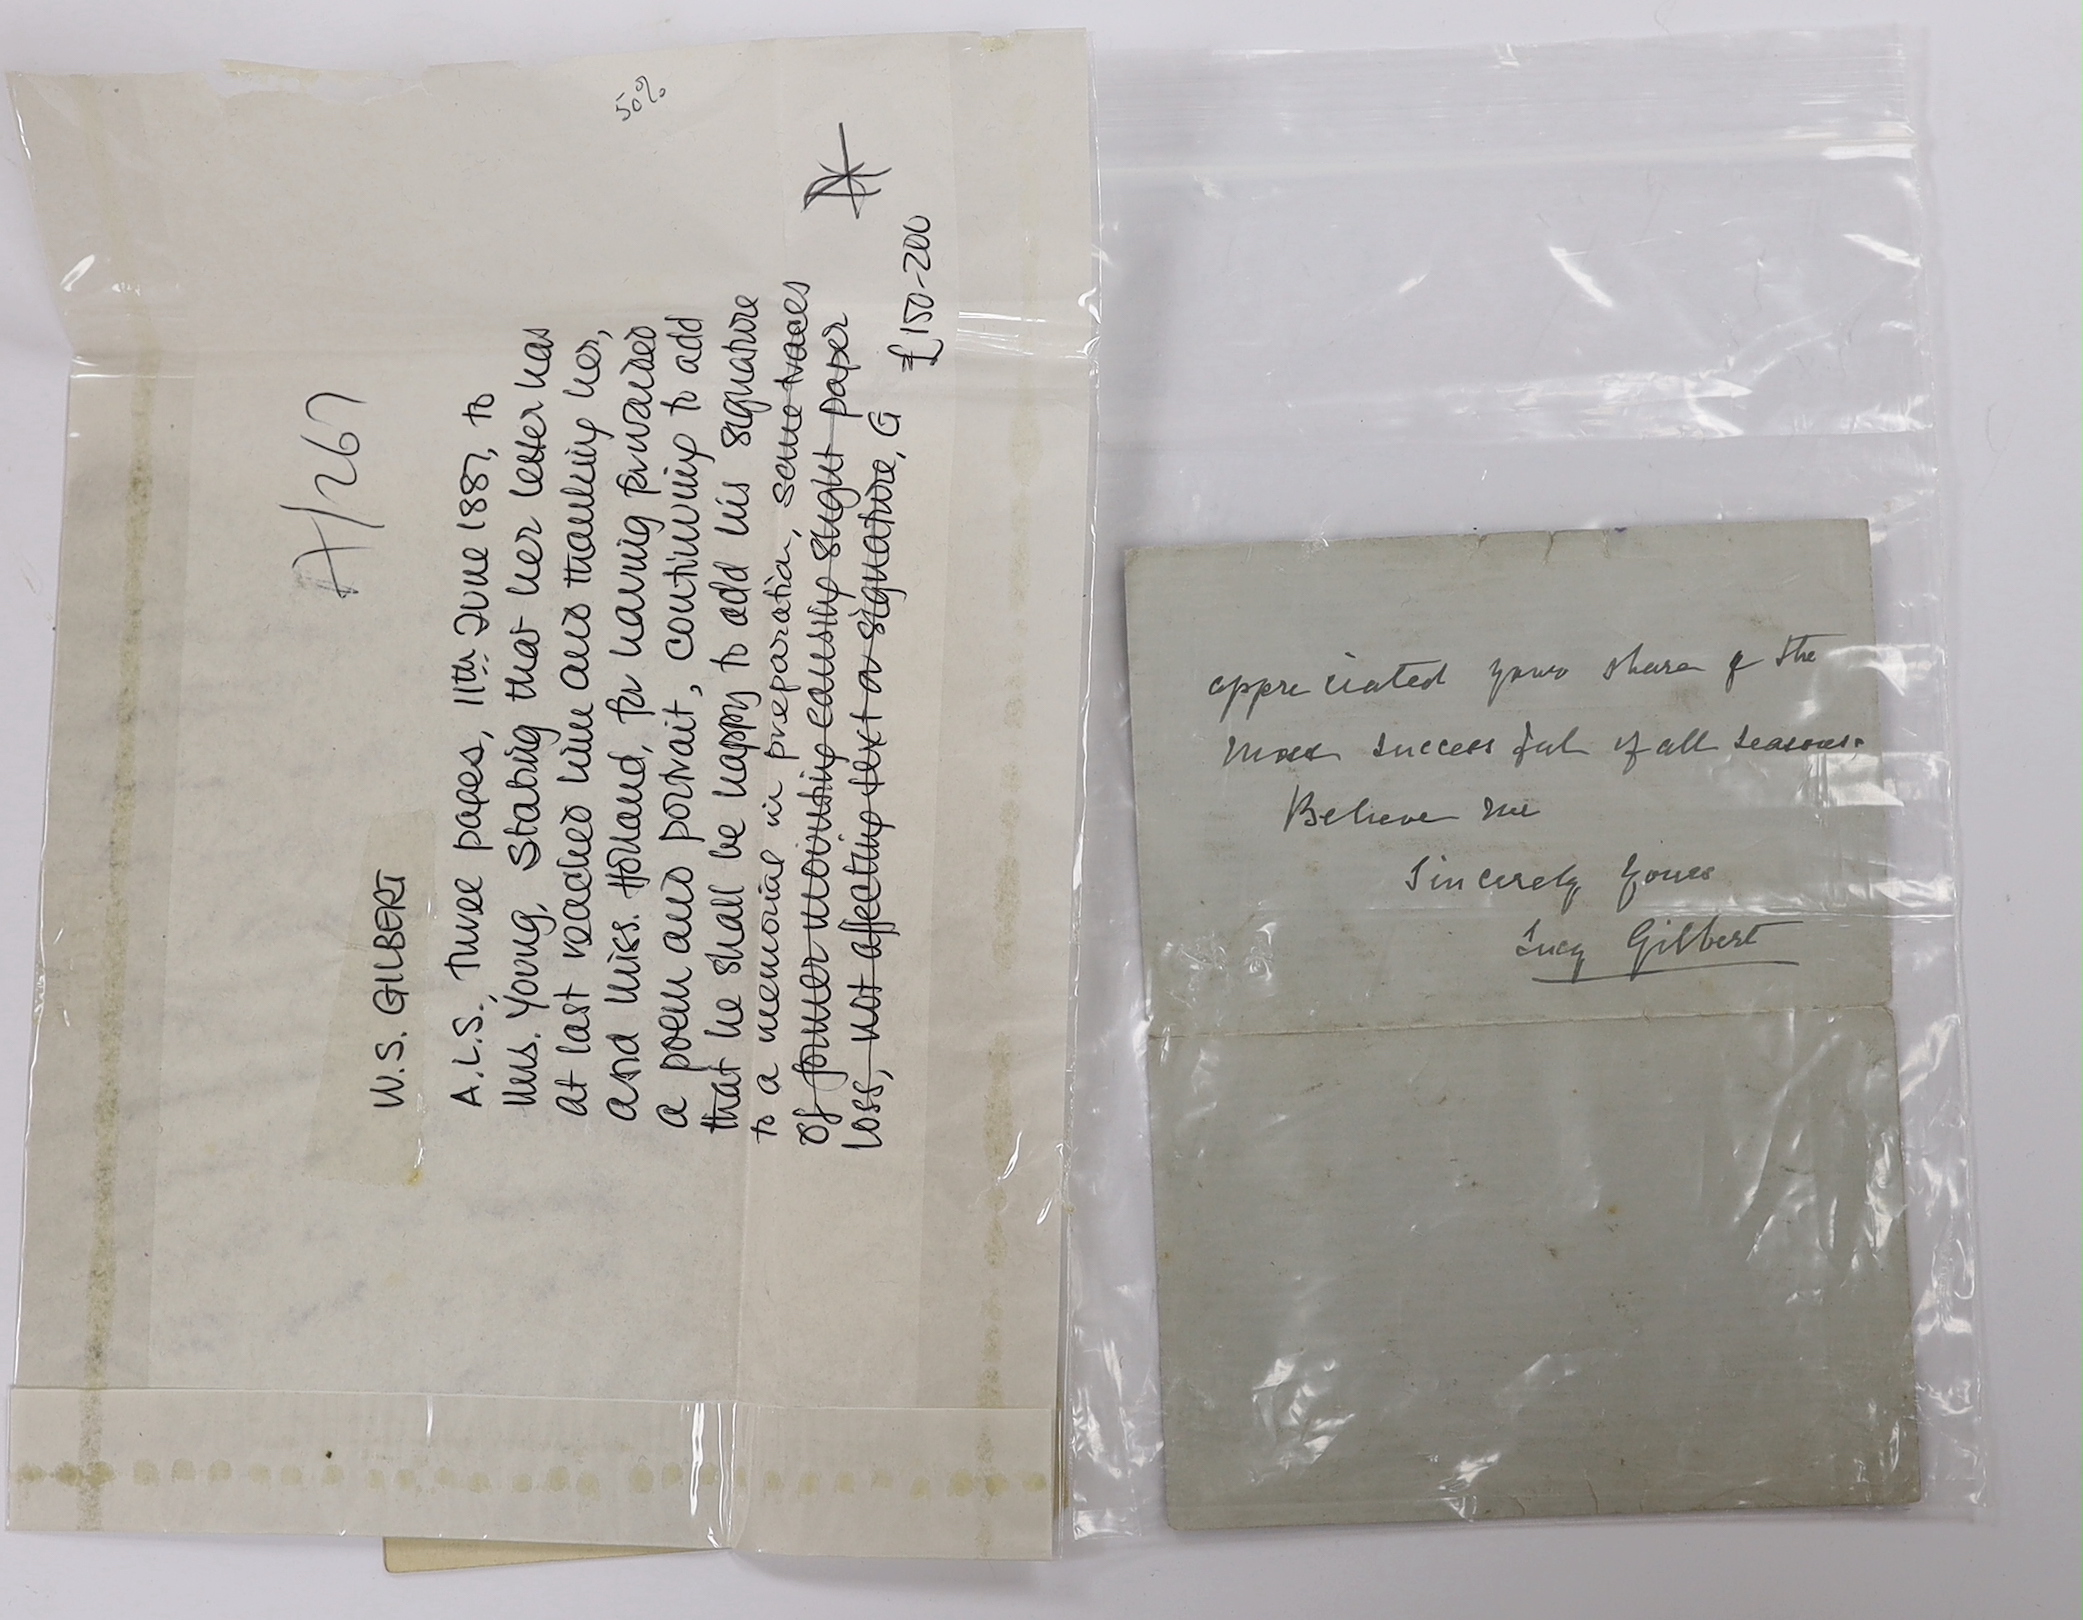 50%
A/267
W.S. GILBERT
A.L.S., Three pages, 11th June 1887, to
Mrs. Young, Stating that her letter has
at last reached him and thanking her,
and Miss. Holland, for having provided
a poem and portrait, continuing to add
that he shall be happy to add his signature
to a memorial in preparation, some traces
of former mounting causing slight paper
loss, not affecting text or signature, G
£150-200
appreciated your share of the
most successful of all seasons.
Believe me
Sincerely yours
Lucy Gilbert